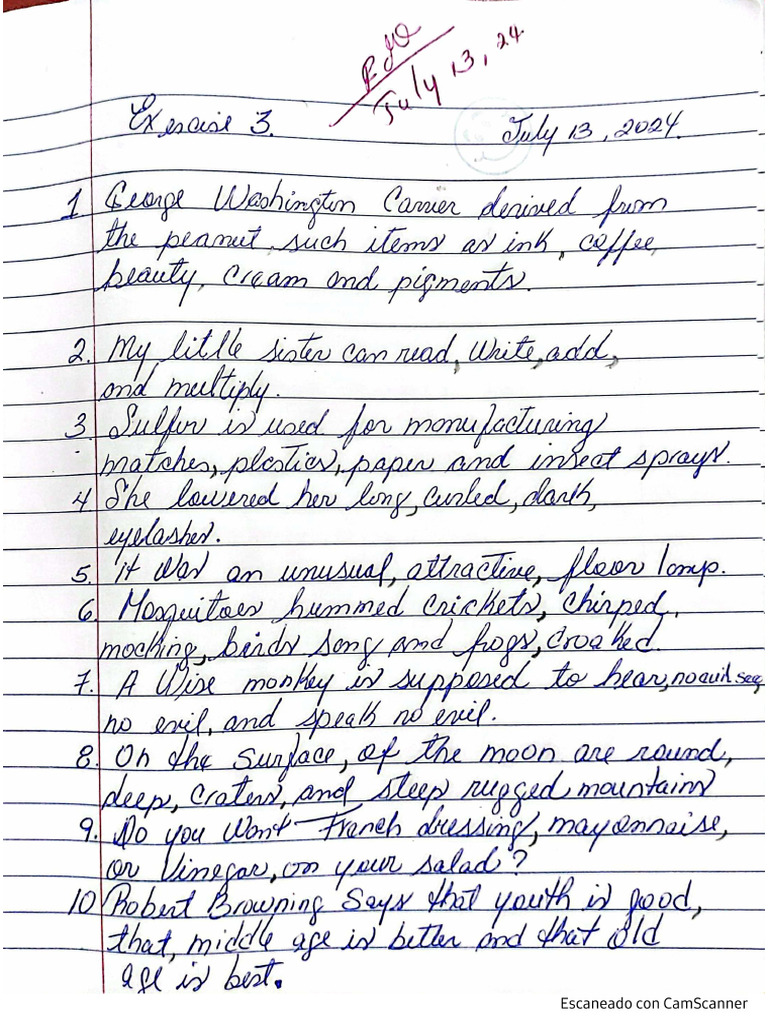 July 13, 24
Exercise 3.
July 13, 2024.
1 George Washington Carrier derived from
the peanut such items as ink, coffee,
beauty, cream and pigments.
2. My little sister can read, write, add,
and multiply.
3 Sulfur is used for manufacturing
matches, plastics, paper and insect sprays.
4 She lowered her long, curled, dark,
eyelashes.
5. it was an unusual, attractive, floor lamp.
6. Mosquitoes hummed crickets, chirped,
mocking, birds song and frogs, croaked.
7. A Wise monkey is supposed to hear, no evil see,
no evil, and speak no evil.
8. On the surface, of the moon are round,
deep, craters, and steep rugged mountains
9. Do you want French dressing, mayonnaise,
or vinegar, on your salad?
10 Robert Browning Says that youth is good,
that, middle age is better and that old
age is best.
Escaneado con CamScanner